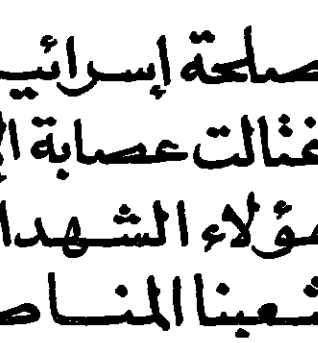 صلحة إسرائيـ
غتالت عصابة الإ
هؤلاء الشهدا
شعبنا المناص